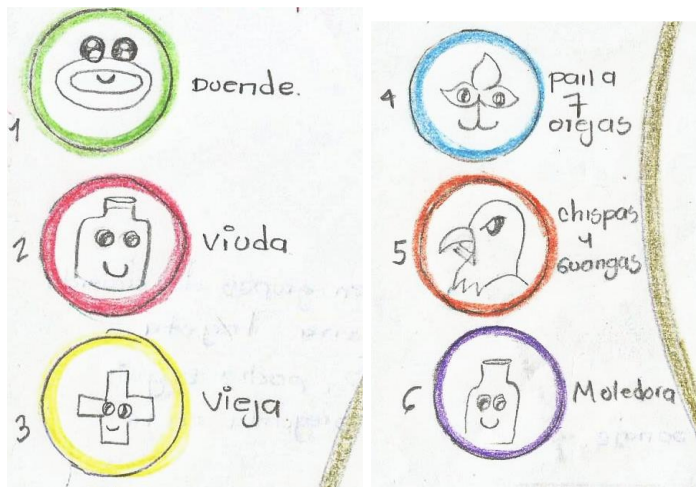 1 Duende.
2 Viuda
3 Vieja.
4 paila
7
orejas
5 chispas
y
Guangas
6 Moledora